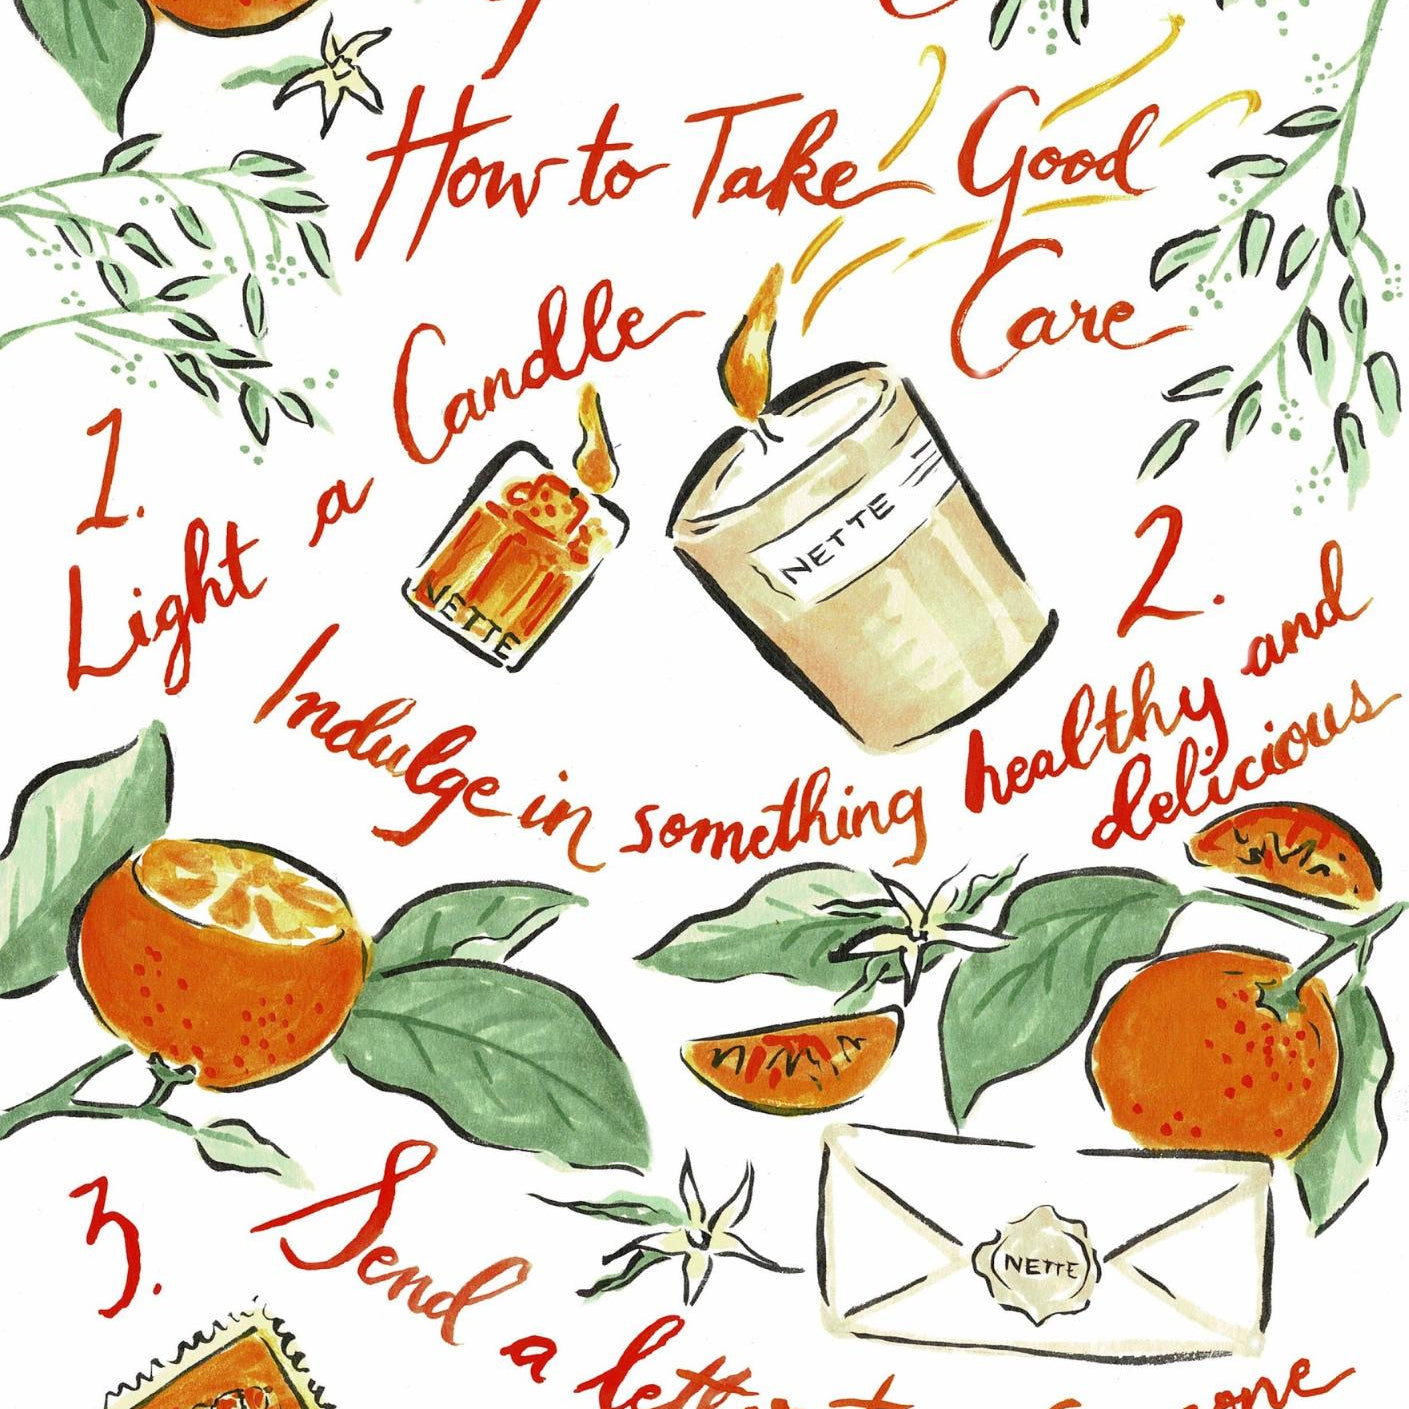 How to Take Good
Care
1.
Light a Candle
NETTE
NETTE
2.
Indulge in something healthy and
delicious
3.
Send a letter to someone
NETTE